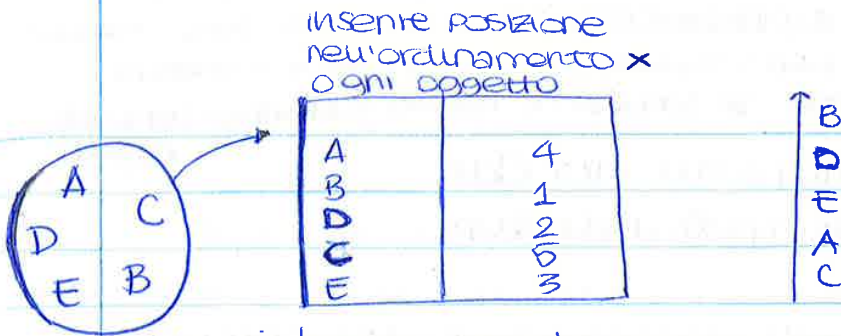 inserire posizione
nell'ordinamento x
ogni oggetto
A 4
B 1
D 2
C 5
E 3
B
D
E
A
C
A
C
D
E B